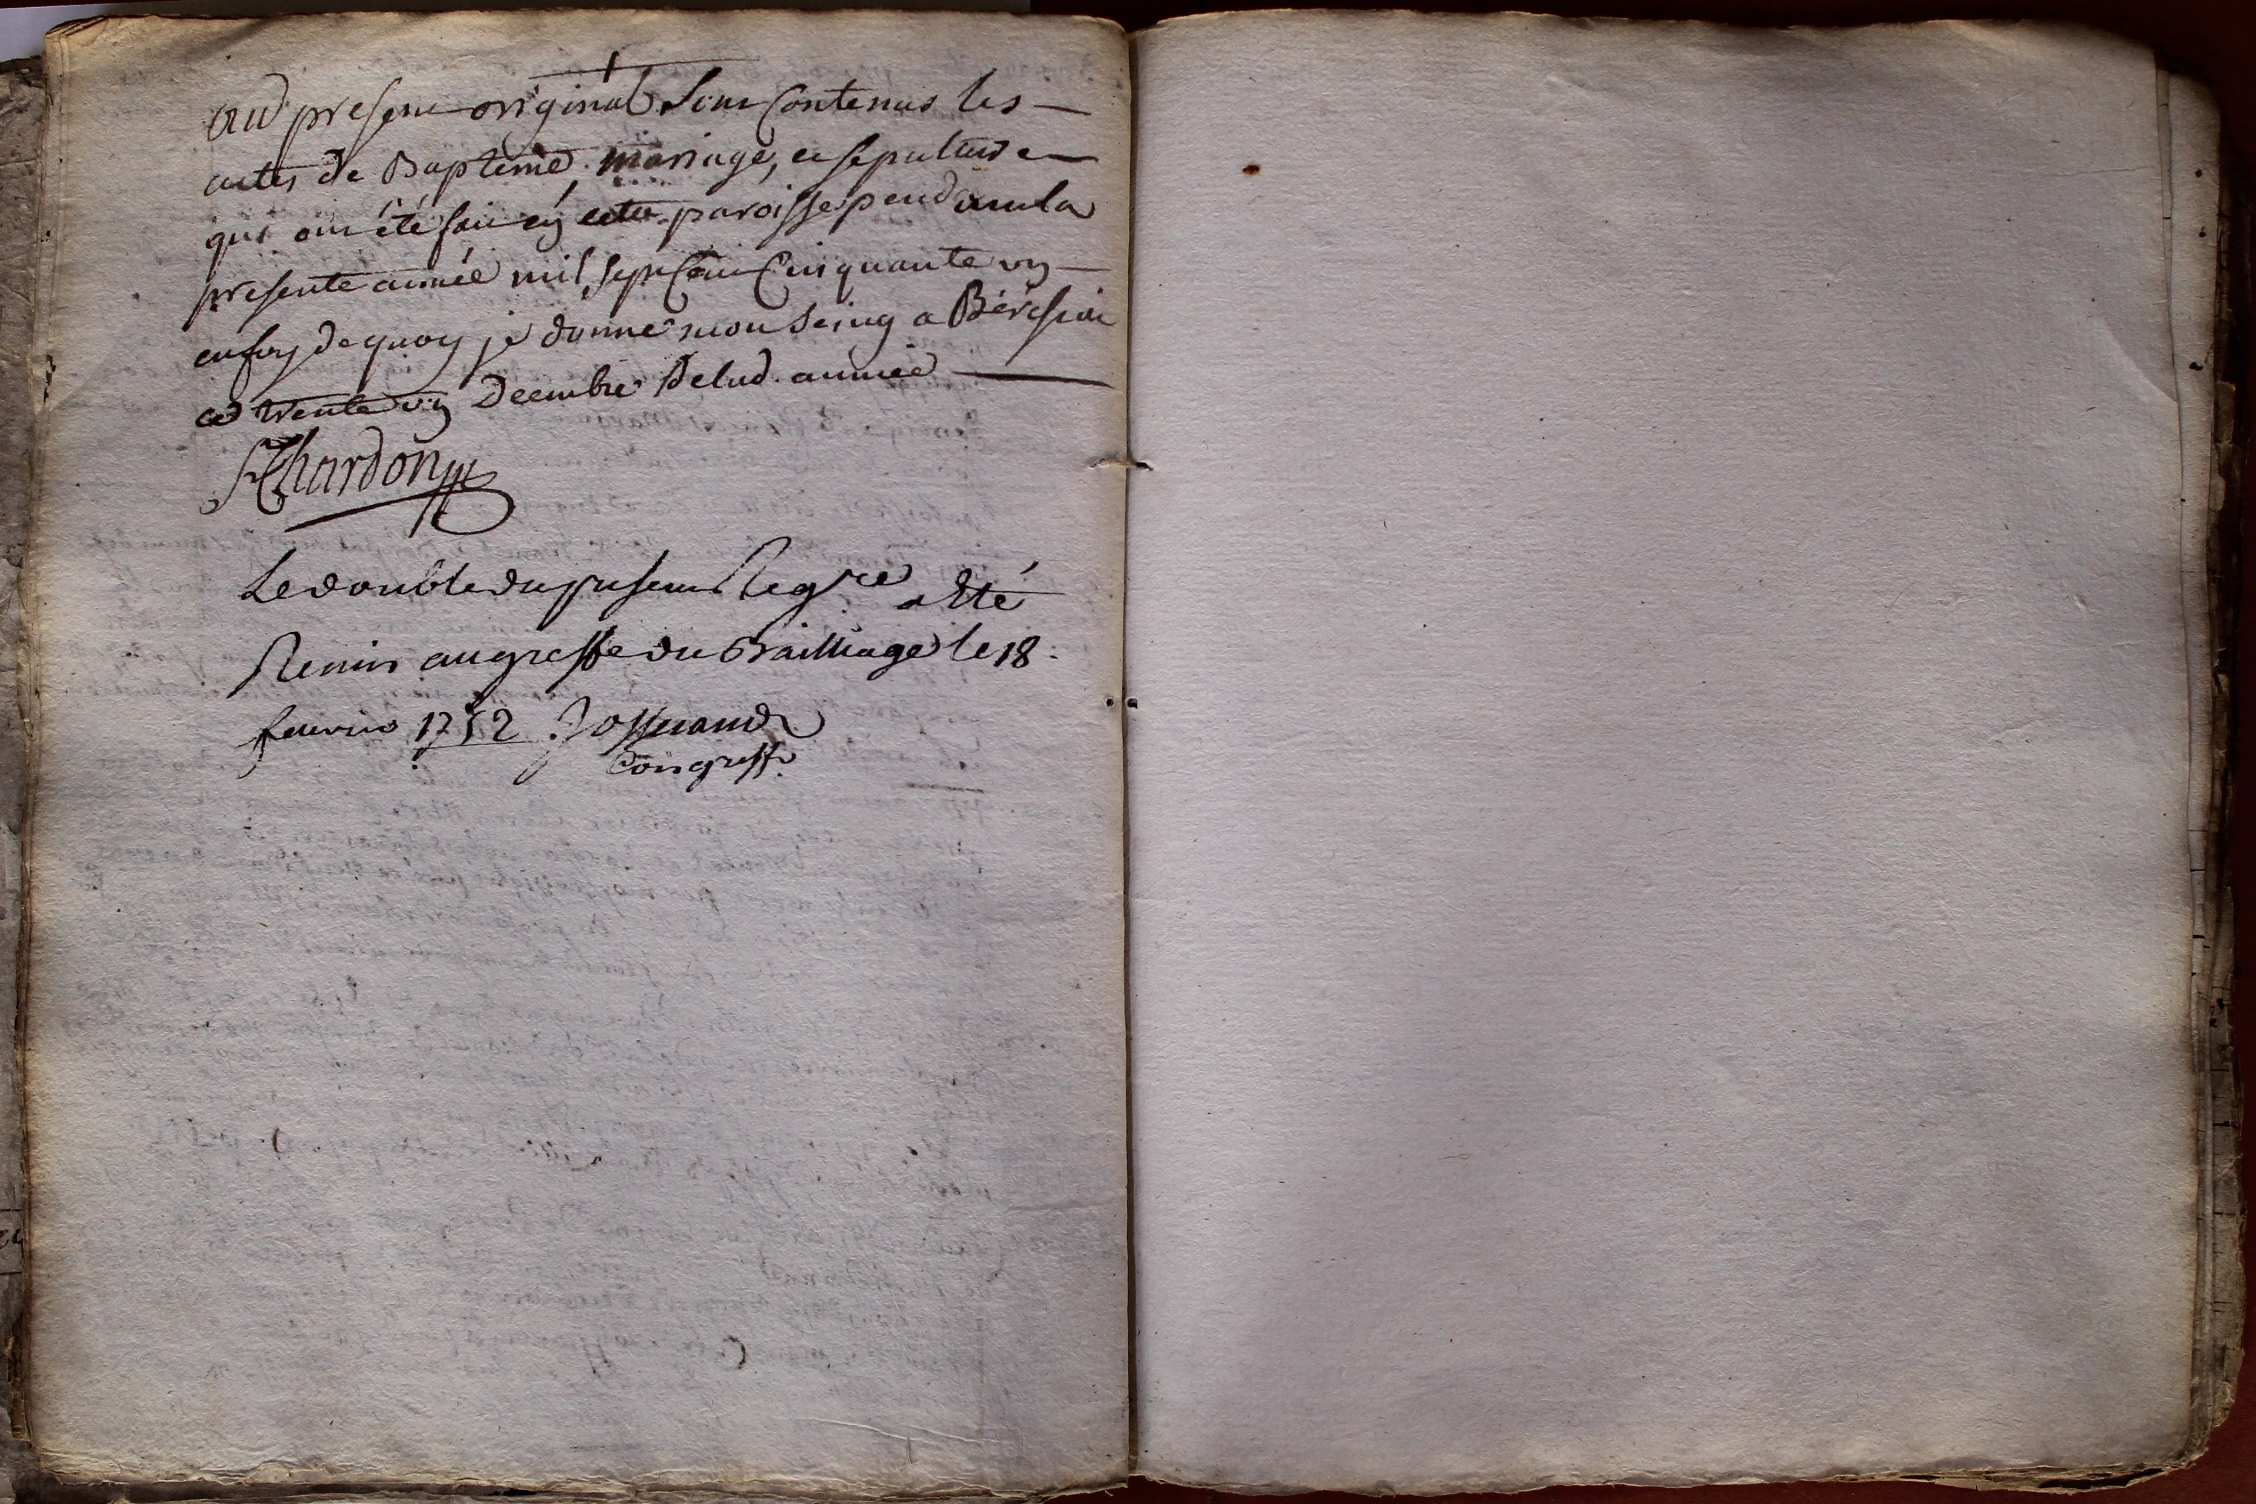 au present original sont Contenus les
actes de Baptéme, mariage, et sepulture
qui ont été fait en cette paroisse pendant la
presente année mil sept Cent Cinquante un
en foy de quoy je donne mon seing a
ce trente un Decembre delad. année
Chardon
Le double du present Regre a Eté
Remis au greffe du Bailliage le 18
feuvrier 1752 Josserand
Com greff.